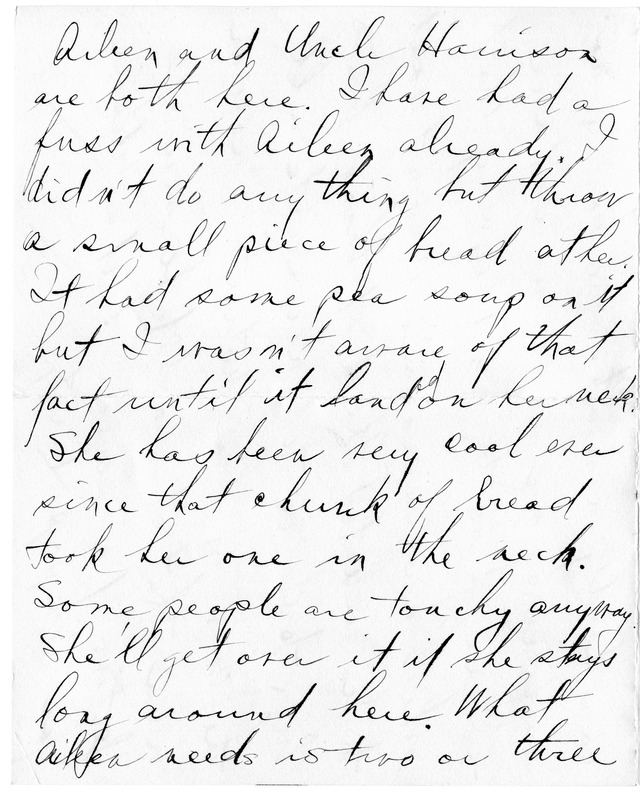 Aileen and Uncle Harrison
are both here. I have had a
fuss with Aileen already. I
didn't do any thing but throw
a small piece of bread at her.
It had some pea soup on it
but I wasn't aware of that
fact until it landed on her neck.
She has been very cool ever
since that chunk of bread
took her one in the neck.
Some people are touchy anyway.
She'll get over it if she stays
long around here. What
Aileen needs is two or three